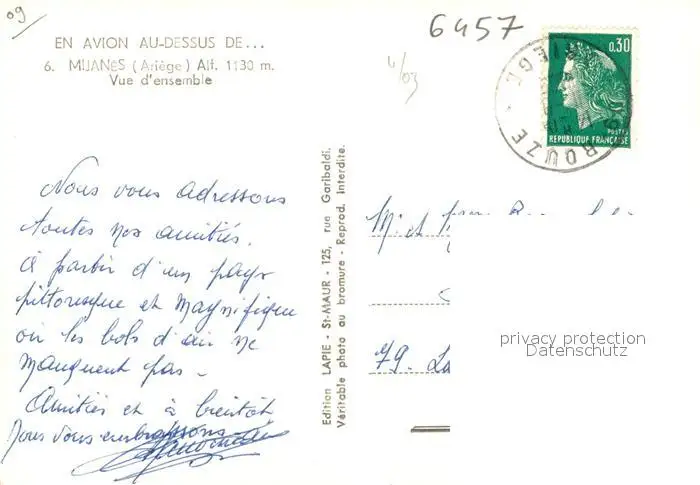 09
6457
4/03
EN AVION AU-DESSUS DE...
6. MIJANÈS (Ariège) Alt. 1130 m.
Vue d'ensemble
0,30
POSTES
REPUBLIQUE FRANÇAISE
ROUZE
ARIEGE
Nous vous adressons
toutes nos amitiés.
à partir d'un pays
pittoresque et magnifique
où les bols d'air ne
manquent pas -
Amitiés et à bientôt
Nous vous embrassons
Edition LAPIE - St-MAUR - 125, rue Garibaldi.
Véritable photo au bromure - Reprod. Interdite.
M. et
79. La
privacy protection
Datenschutz